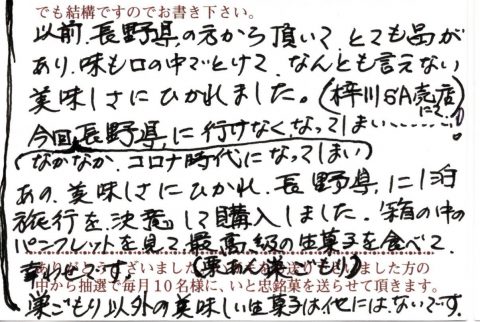 でも結構ですのでお書き下さい。
以前、長野県の方から頂いて、とても品が
あり、味も口の中でとけて、なんとも言えない
美味しさにひかれました。(梓川SA売店にて)
今回、長野県に行けなくなってしまい……!
(なかなか、コロナ時代になってしまい)
あの、美味しさにひかれ、長野県、に1泊
旅行を、決意して購入しました。箱の中の
パンフレットを見て、最高級の生菓子を食べて、
幸せです。(栗あん巣ごもり)
ありがとうございました
送り
いました方の
中から抽選で毎月10名様に、いと忠銘菓を送らせて頂きます。
巣ごもり以外の美味しい生菓子は、他には、ないです。